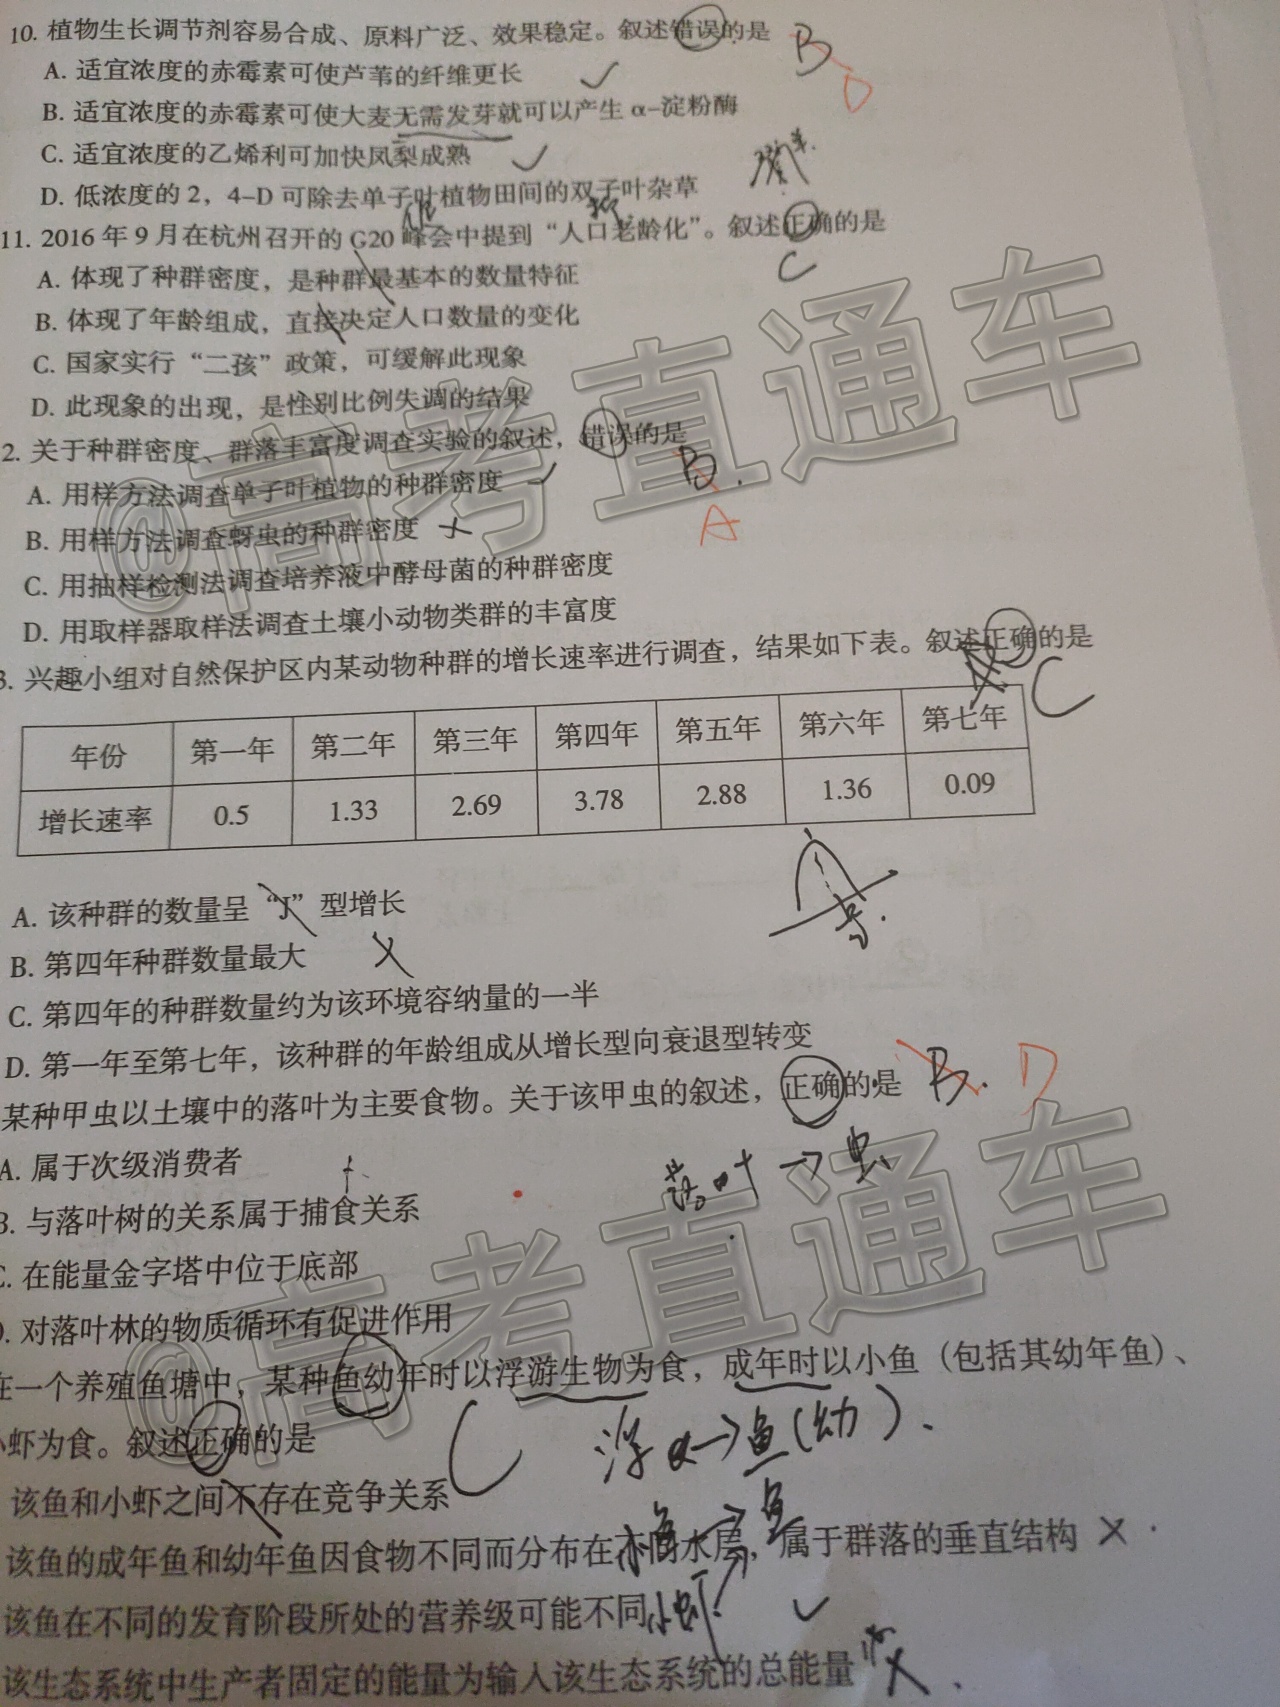 10. 植物生长调节剂容易合成、原料广泛、效果稳定。叙述错误的是 B D
A. 适宜浓度的赤霉素可使芦苇的纤维更长
B. 适宜浓度的赤霉素可使大麦无需发芽就可以产生 α-淀粉酶
C. 适宜浓度的乙烯利可加快凤梨成熟
D. 低浓度的 2，4-D 可除去单子叶植物田间的双子叶杂草
11. 2016 年 9 月在杭州召开的 G20 峰会中提到“人口老龄化”。叙述正确的是
C
A. 体现了种群密度，是种群最基本的数量特征
B. 体现了年龄组成，直接决定人口数量的变化
C. 国家实行“二孩”政策，可缓解此现象
D. 此现象的出现，是性别比例失调的结果
2. 关于种群密度、群落丰富度调查实验的叙述，错误的是
B. A
A. 用样方法调查单子叶植物的种群密度
B. 用样方法调查蚜虫的种群密度
C. 用抽样检测法调查培养液中酵母菌的种群密度
D. 用取样器取样法调查土壤小动物类群的丰富度
3. 兴趣小组对自然保护区内某动物种群的增长速率进行调查，结果如下表。叙述正确的是
C
年份 第一年 第二年 第三年 第四年 第五年 第六年 第七年
增长速率 0.5 1.33 2.69 3.78 2.88 1.36 0.09
A. 该种群的数量呈“J”型增长
B. 第四年种群数量最大
C. 第四年的种群数量约为该环境容纳量的一半
D. 第一年至第七年，该种群的年龄组成从增长型向衰退型转变
某种甲虫以土壤中的落叶为主要食物。关于该甲虫的叙述，正确的是 B. D
A. 属于次级消费者
落叶→虫
B. 与落叶树的关系属于捕食关系
C. 在能量金字塔中位于底部
D. 对落叶林的物质循环有促进作用
在一个养殖鱼塘中，某种鱼幼年时以浮游生物为食，成年时以小鱼（包括其幼年鱼）、
小虾为食。叙述正确的是 C
鱼(幼).
该鱼和小虾之间不存在竞争关系
该鱼的成年鱼和幼年鱼因食物不同而分布在不同水层，属于群落的垂直结构
该鱼在不同的发育阶段所处的营养级可能不同
小虾
该生态系统中生产者固定的能量为输入该生态系统的总能量
@高考直通车
@高考直通车